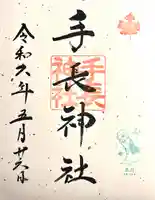 手長神社
手長
神社
令和六年五月廿六日